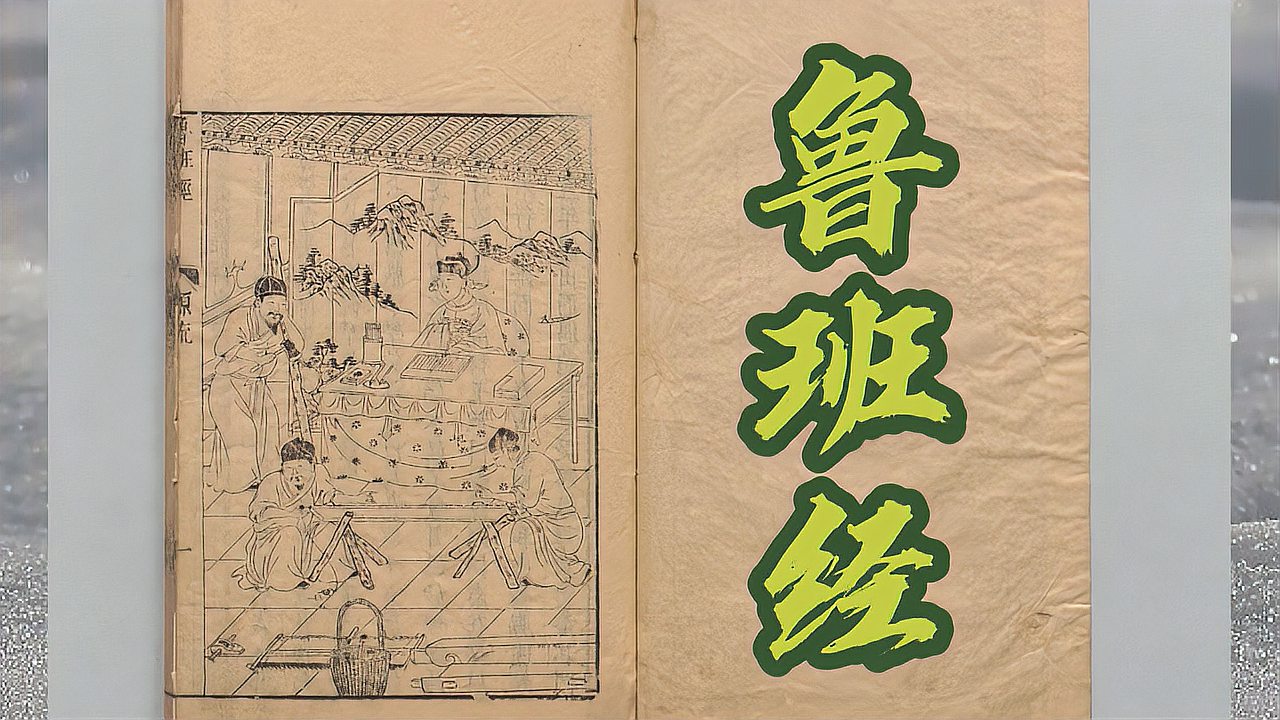 鲁班经
魯班經
源流
一